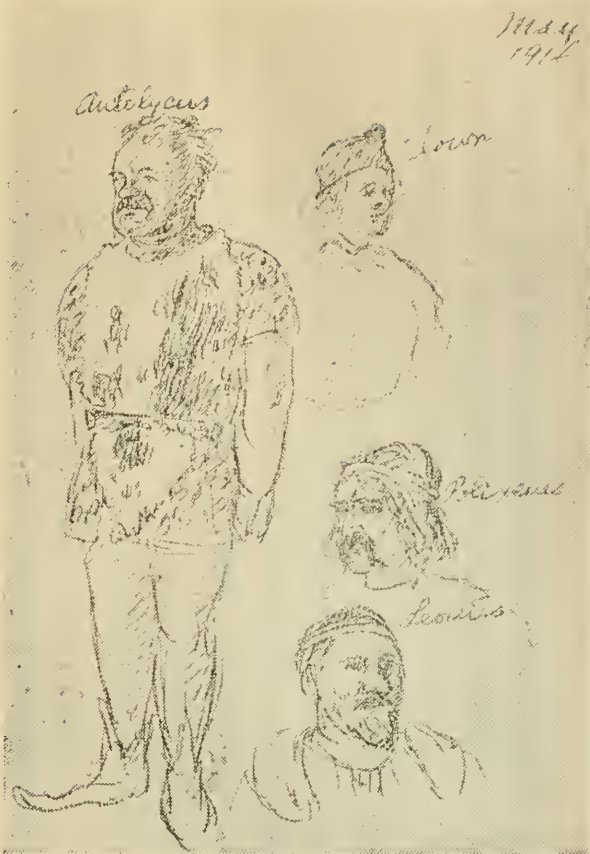 May
Autolycus
Clown
Polixenes
Leontes